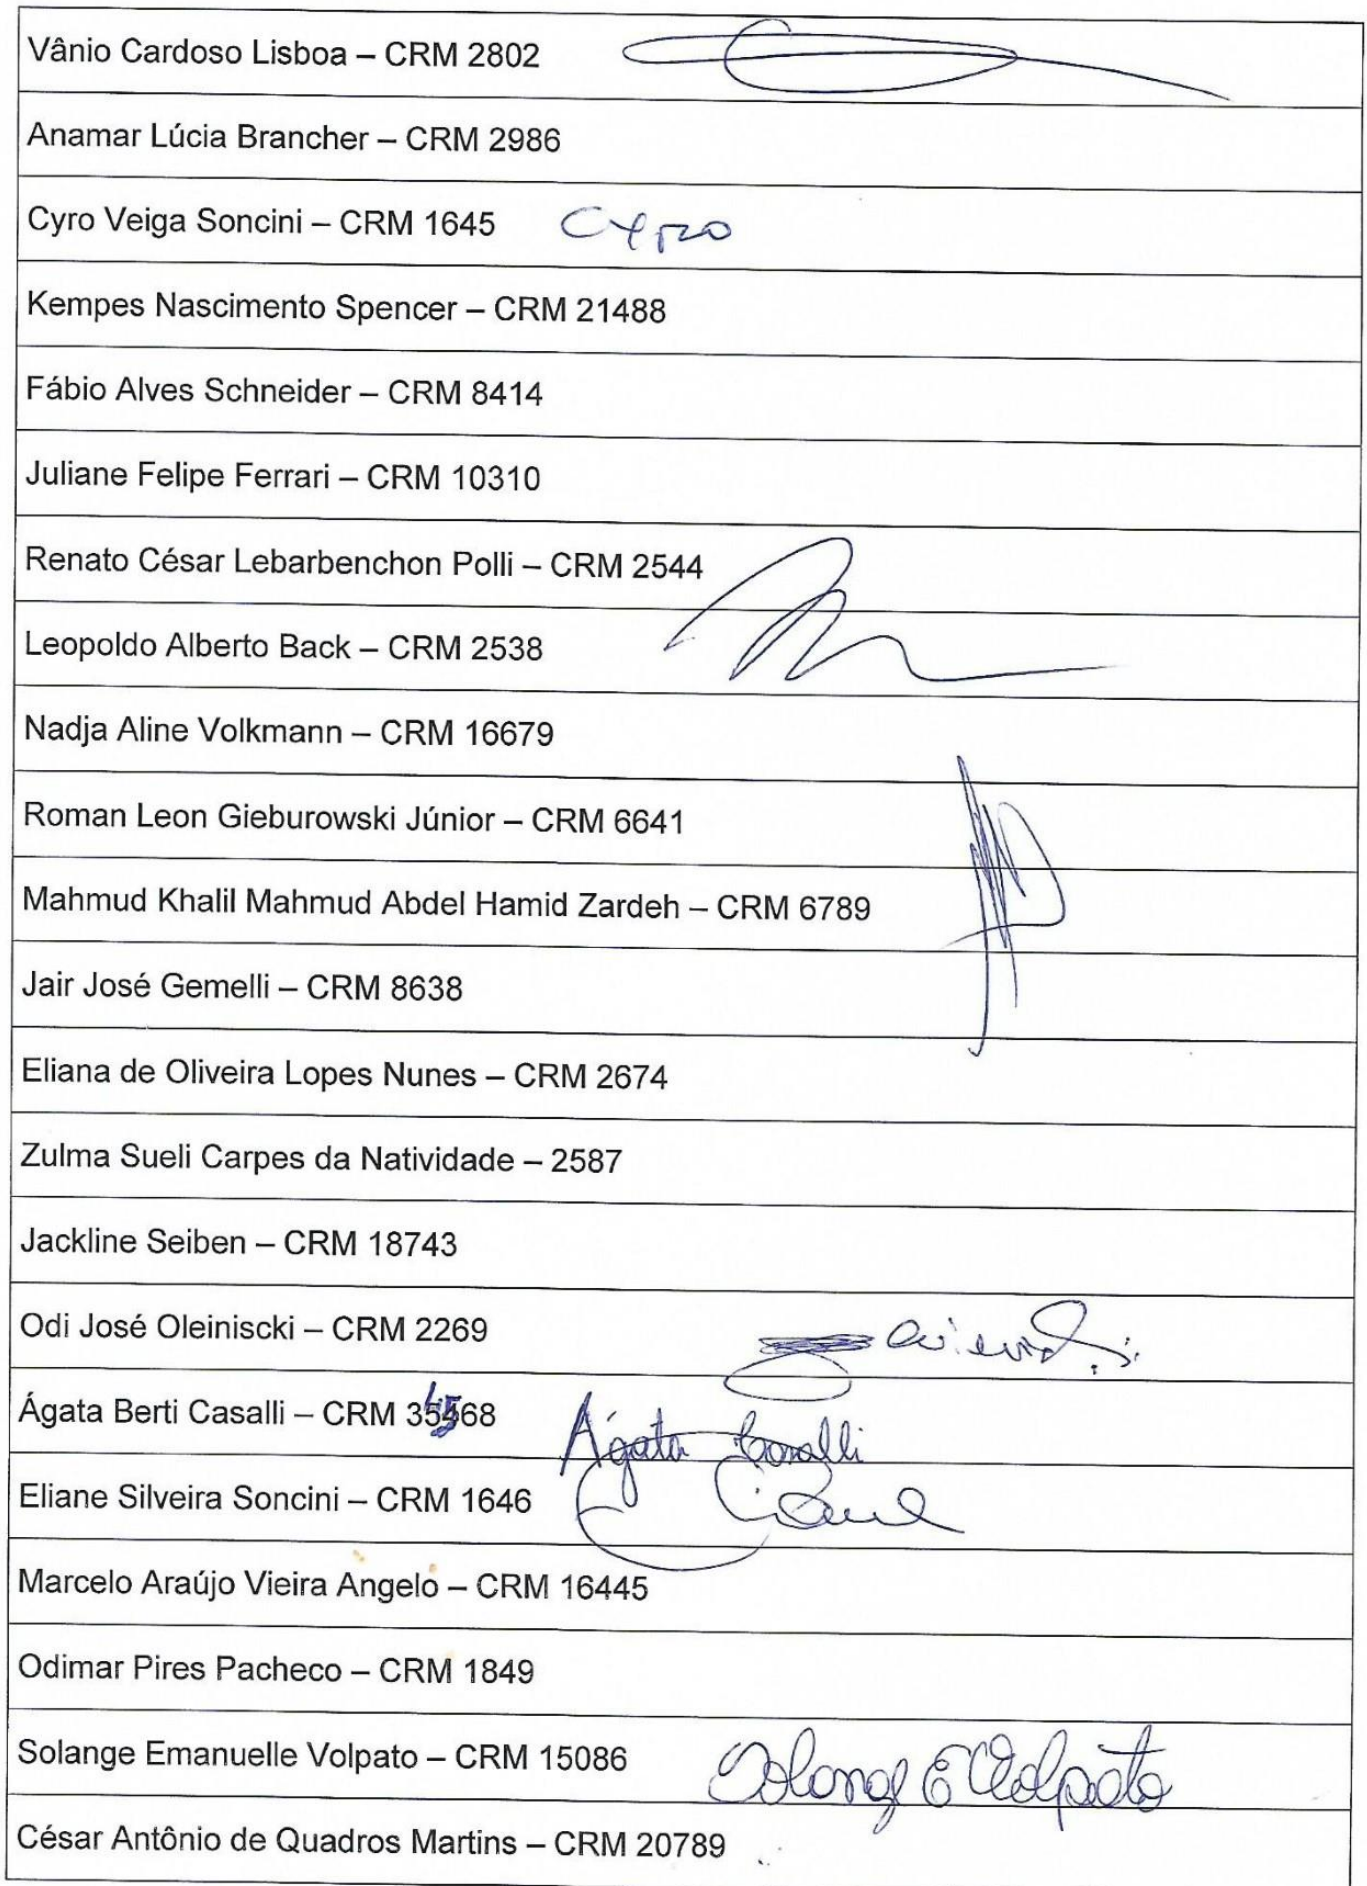 Vânio Cardoso Lisboa – CRM 2802
Anamar Lúcia Brancher – CRM 2986
Cyro Veiga Soncini – CRM 1645 Cyro
Kempes Nascimento Spencer – CRM 21488
Fábio Alves Schneider – CRM 8414
Juliane Felipe Ferrari – CRM 10310
Renato César Lebarbenchon Polli – CRM 2544
Leopoldo Alberto Back – CRM 2538
Nadja Aline Volkmann – CRM 16679
Roman Leon Gieburowski Júnior – CRM 6641
Mahmud Khalil Mahmud Abdel Hamid Zardeh – CRM 6789
Jair José Gemelli – CRM 8638
Eliana de Oliveira Lopes Nunes – CRM 2674
Zulma Sueli Carpes da Natividade – 2587
Jackline Seiben – CRM 18743
Odi José Oleiniscki – CRM 2269
Ágata Berti Casalli – CRM Ágata Casalli
Eliane Silveira Soncini – CRM 1646
Marcelo Araújo Vieira Angelo – CRM 16445
Odimar Pires Pacheco – CRM 1849
Solange Emanuelle Volpato – CRM 15086 Solange E Volpato
César Antônio de Quadros Martins – CRM 20789